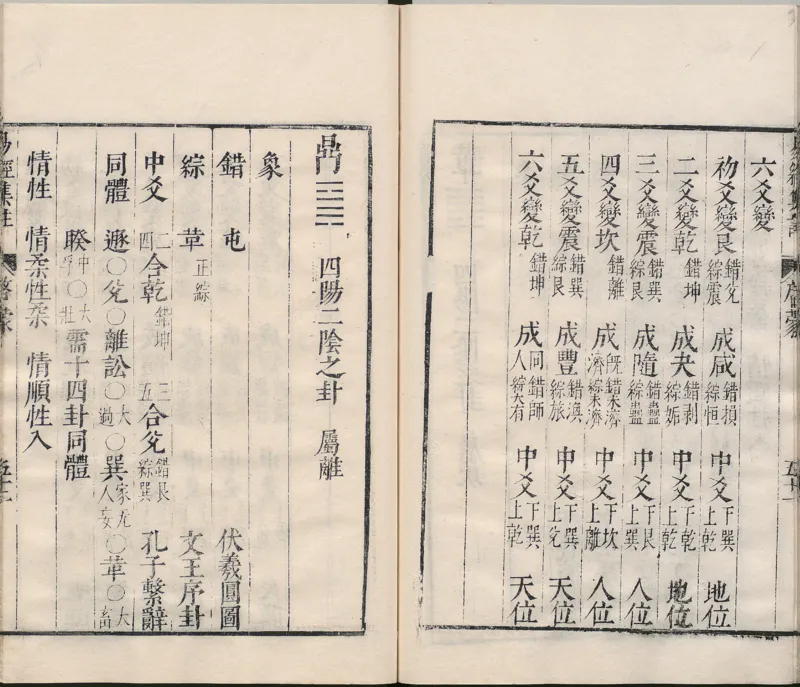 六爻變
初爻變艮 錯兌綜震 成咸 錯損綜恒 中爻 下巽上乾 地位
二爻變乾 錯坤 成夬 錯剥綜姤 中爻 下乾上乾 地位
三爻變震 錯巽綜艮 成隨 錯蠱綜蠱 中爻 下艮上巽 人位
四爻變坎 錯離 成既濟 錯未濟綜未濟 中爻 下坎上離 人位
五爻變震 錯巽綜艮 成豐 錯渙綜旅 中爻 下巽上兌 天位
六爻變乾 錯坤 成同人 錯師綜大有 中爻 下巽上乾 天位
鼎䷱ 四陽二陰之卦 屬離
象
錯 屯 伏羲圓圖
綜 革 正綜 文王序卦
中爻 二四合乾 錯坤 三五合兌 錯艮綜巽 孔子繫辭
同體 遯○兌○離訟○大過○巽家人无妄○革○大畜
睽中孚○大壯需十四卦同體
情性 情柔性柔 情順性入
易經集註 啓蒙